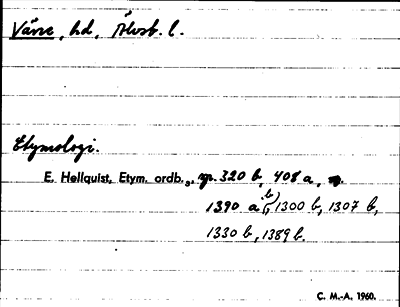 Väne, hd, Älvsb. l.
Etymologi.
E. Hellquist, Etym. ordb., 320 b, 408 a,
1390 a (, b), 1300 b, 1307 b,
1330 b, 1389 b.
C. M.-A. 1960.